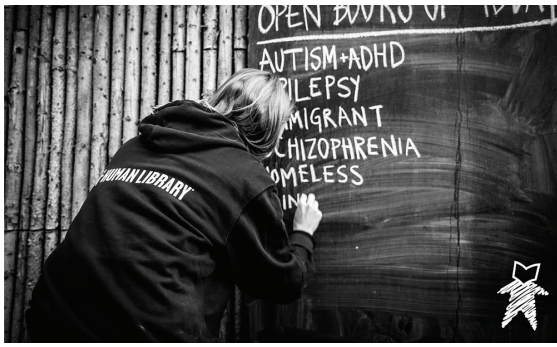 OPEN BOOKS OF TODAY
AUTISM+ADHD
PILEPSY
MIGRANT
CHIZOPHRENIA
OMELESS
HUMAN LIBRARY